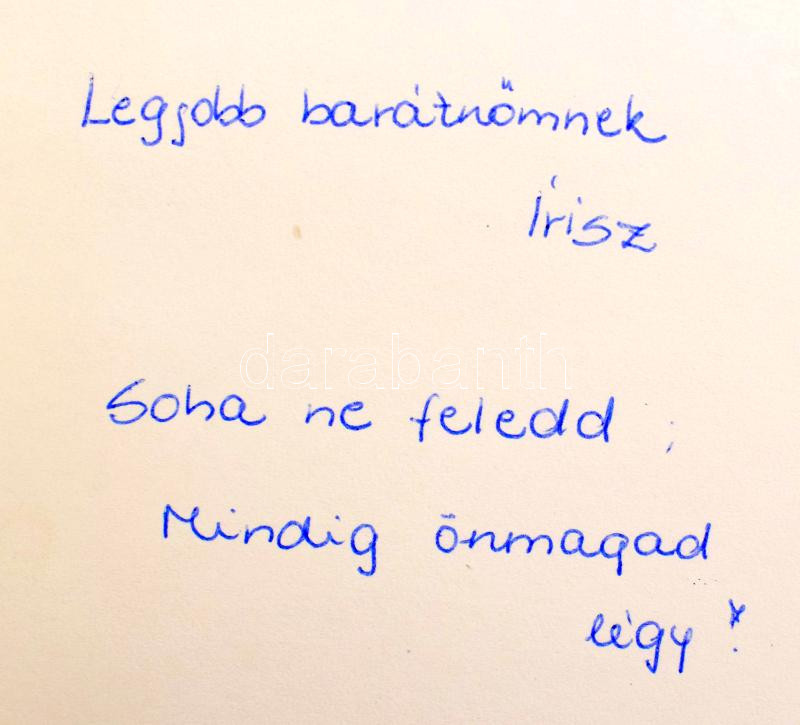 Legjobb barátnőmnek
Írisz
darabanth
Soha ne feledd ;
Mindig önmagad
légy !